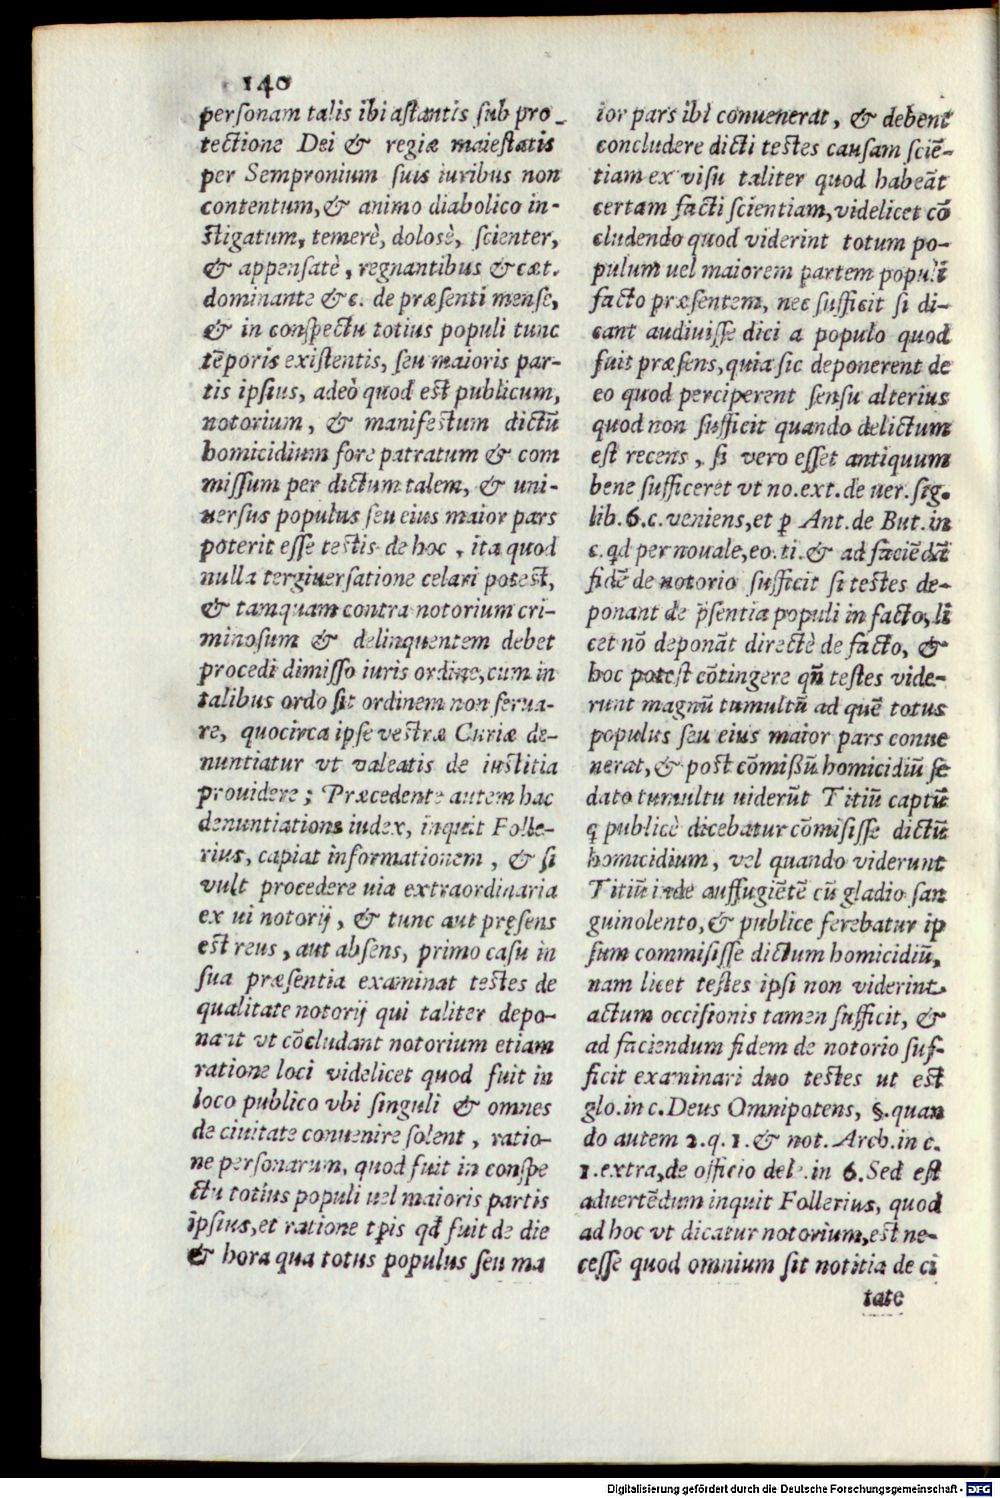 140
personam talis ibi astantis sub pro-
tectione Dei & regiæ maiestatis
per Sempronium suis iuribus non
contentum, & animo diabolico in-
stigatum, temerè, dolosè, scienter,
& appensatè, regnantibus & cæt.
dominante &c. de præsenti mense,
& in conspectu totius populi tunc
tẽporis existentis, seu maioris par-
tis ipsius, adeò quod est publicum,
notorium, & manifestum dictũ
homicidium fore patratum & com
missum per dictum talem, & uni-
uersus populus seu eius maior pars
poterit esse testis de hoc, ita quod
nulla tergiuersatione celari potest,
& tamquam contra notorium cri-
minosum & delinquentem debet
procedi dimisso iuris ordine, cum in
talibus ordo sit ordinem non serua-
re, quocirca ipse vestræ Curiæ de-
nuntiatur vt valeatis de iustitia
prouidere; Præcedente autem hac
denuntiatione iudex, inquit Folle-
rius, capiat informationem, & si
vult procedere uia extraordinaria
ex ui notorij, & tunc aut pręsens
est reus, aut absens, primo casu in
sua præsentia examinat testes de
qualitate notorij qui taliter depo-
nant vt cõcludant notorium etiam
ratione loci videlicet quod fuit in
loco publico vbi singuli & omnes
de ciuitate conuenire solent, ratio-
ne personarum, quod fuit in conspe
ctu totius populi uel maioris partis
ipsius, et ratione tp̃is qđ fuit de die
& hora qua totus populus seu ma
ior pars ibi conuenerat, & debent
concludere dicti testes causam sciẽ-
tiam ex visu taliter quod habeãt
certam facti scientiam, videlicet cõ
cludendo quod viderint totum po-
pulum uel maiorem partem populi
facto præsentem, nec sufficit si di-
cant audiuisse dici a populo quod
fuit præsens, quia sic deponerent de
eo quod perciperent sensu alterius
quod non sufficit quando delictum
est recens, si vero esset antiquum
bene sufficeret vt no. ext. de uer. sig.
lib. 6. c. veniens, et ꝑ Ant. de But. in
c. qđ per nouale, eo. ti. & ad faciẽdã
fidẽ de notorio sufficit si testes de-
ponant de p̃sentia populi in facto, li
cet nõ deponãt directè de facto, &
hoc potest cõtingere qñ testes vide-
runt magnũ tumultũ ad quẽ totus
populus seu eius maior pars conue
nerat, & post cõmißũ homicidiũ se
dato tumultu uiderũt Titiũ captũ
q publicè dicebatur cõmisisse dictũ
homicidium, vel quando viderunt
Titiũ inde auffugiẽtẽ cũ gladio san
guinolento, & publice ferebatur ip
sum commisisse dictum homicidiũ,
nam licet testes ipsi non viderint
actum occisionis tamen sufficit, &
ad faciendum fidem de notorio suf-
ficit examinari duo testes ut est
glo. in c. Deus Omnipotens, §. quan
do autem 2. q. 1. & not. Arch. in c.
1. extra, de officio dele. in 6. Sed est
aduertẽdum inquit Follerius, quod
ad hoc vt dicatur notorium, est ne-
cesse quod omnium sit notitia de ci
tate
Digitalisierung gefördert durch die Deutsche Forschungsgemeinschaft - DFG